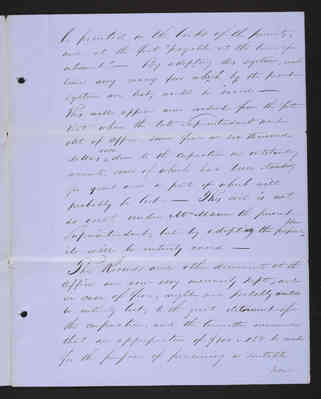 be printed on the backs of the permits,
and at the foot payable at the time of
interment — By adopting this system, not
only very many fees which by the present
system are lost, would be saved —
This will appear more evident from the fact
that when the late Superintendent went
out of office some four or six thousand
dollars were due to the Corporation on outstanding
accounts, some of which has been
and a part of which will
probably be lost — This evil is not
so great under Mr. the present
Superintendent, but by adopting the plan proposed
it will be entirely cured —
The Records and other documents at the
office are now very insecurely kept, and
in case of fire, might and probably would
be entirely lost, to the great detriment of
the corporation, and the Committee recommend
that an appropriation of be made
for the purpose of procuring a suitable